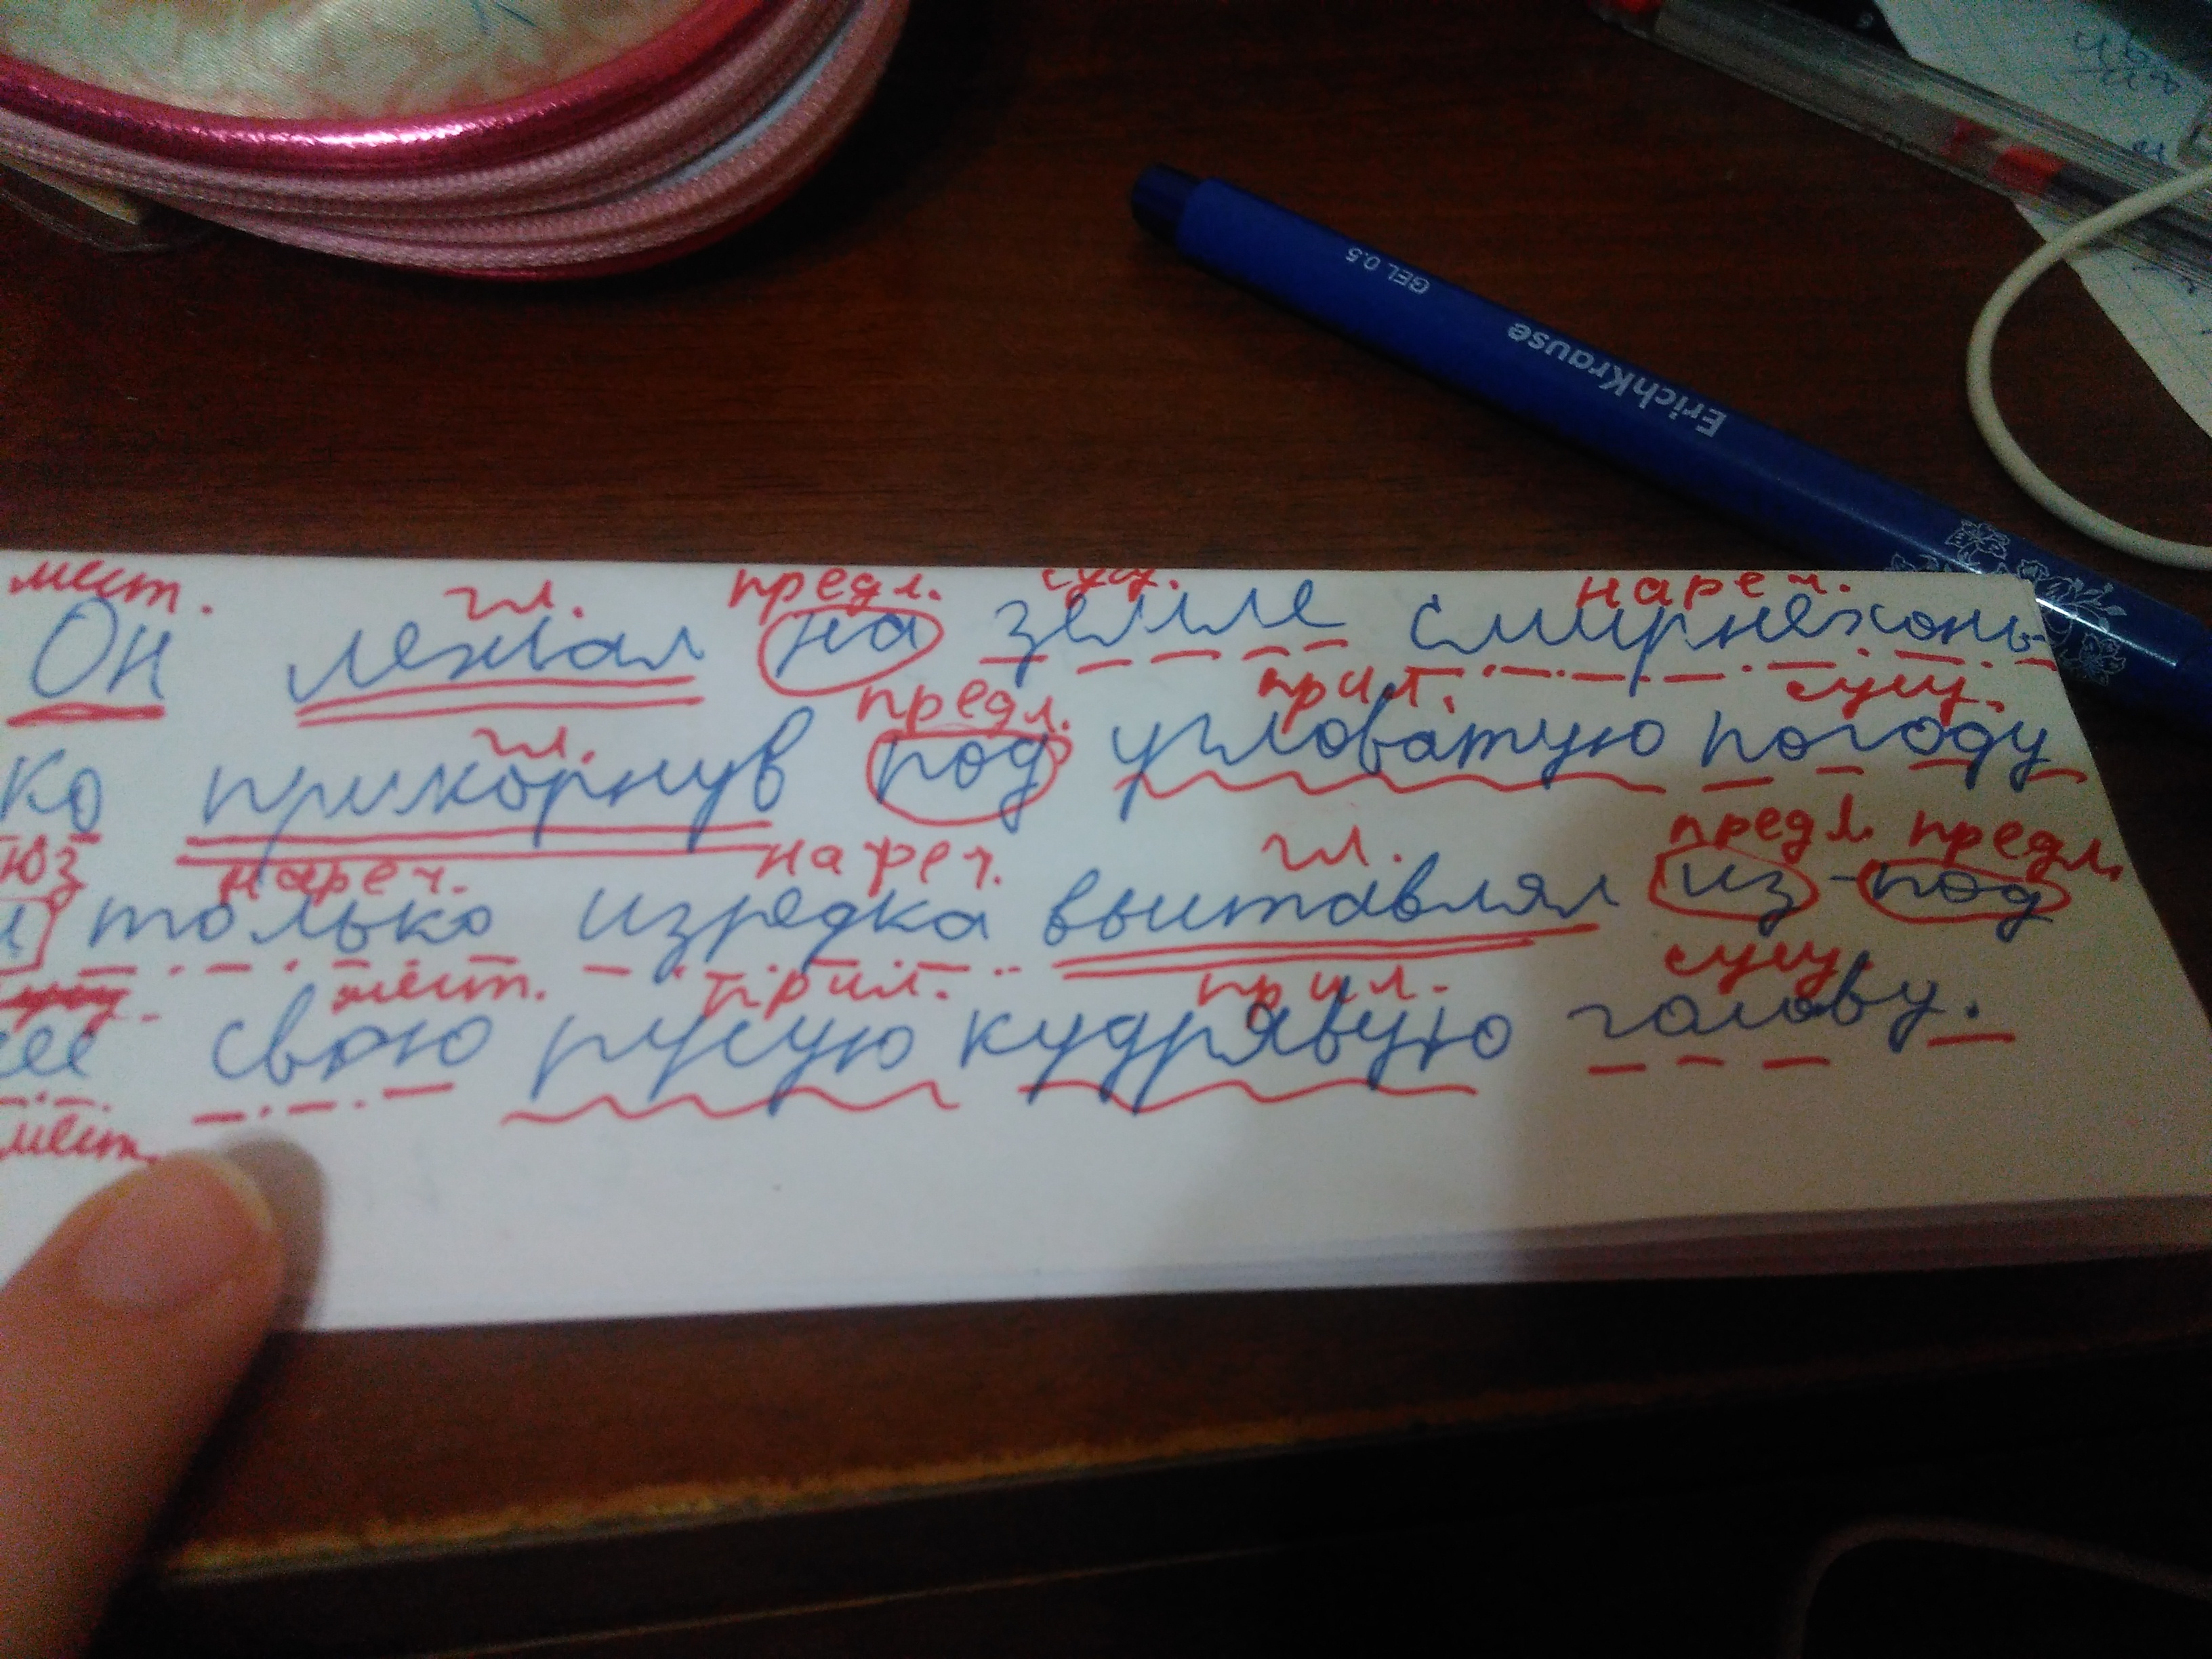 мест. гл. предл. сущ. нареч.
Он лежал на земле смирнехонь-
гл. предл. прил. сущ.
ко прикорнув под угловатую погоду
юз нареч. нареч. гл. предл. предл.
и только изредка выставлял из-под
мест. прил. прил. сущ.
ее свою русую кудрявую голову.
мест.
ErichKrause
GEL 0.5